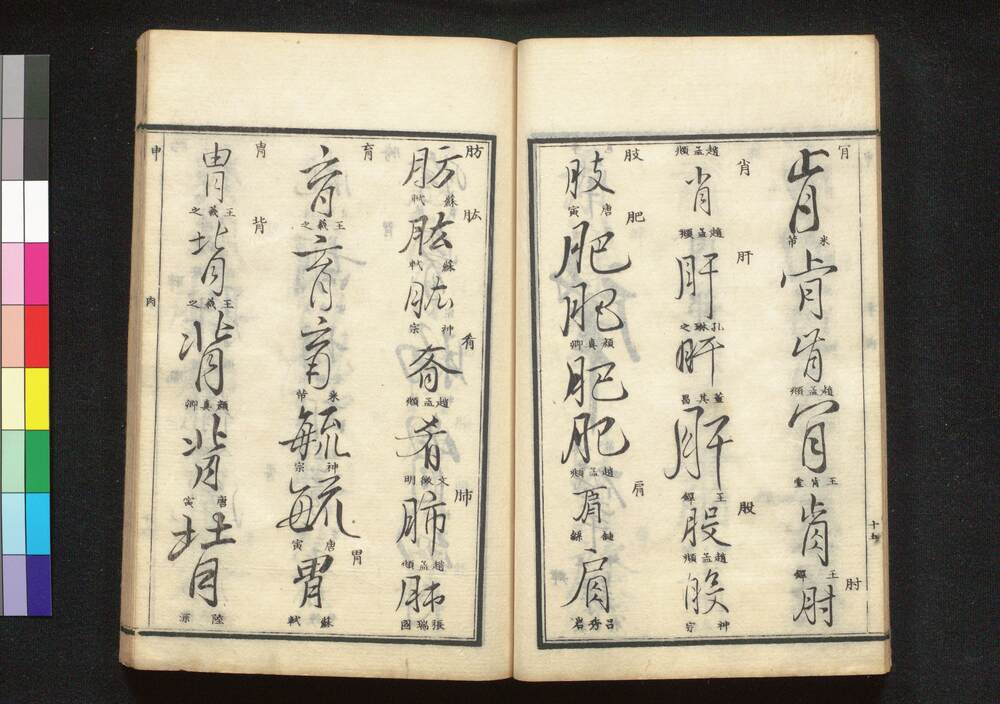 肯
米芾
肯
肯
趙孟頫
肯
王肯堂
肯
王鐸
肘
肘
趙孟頫
肖
肖
趙孟頫
肝
肝
孔琳之
肝
董其昌
肝
王鐸
股
股
趙孟頫
股
神宗
肢
肢
唐寅
肥
肥
肥
顏真卿
肥
肥
趙孟頫
肩
肩
鍾繇
肩
呂秀岩
肪
肪
蘇軾
肱
肱
蘇軾
肱
神宗
肴
肴
趙孟頫
肴
文徵明
肺
肺
趙孟頫
肺
張瑞圖
育
育
王羲之
育
育
米芾
毓
神宗
毓
唐寅
胃
胃
蘇軾
胄
胄
王羲之
背
背
王羲之
背
顏真卿
背
唐寅
背
陸游
申
肉